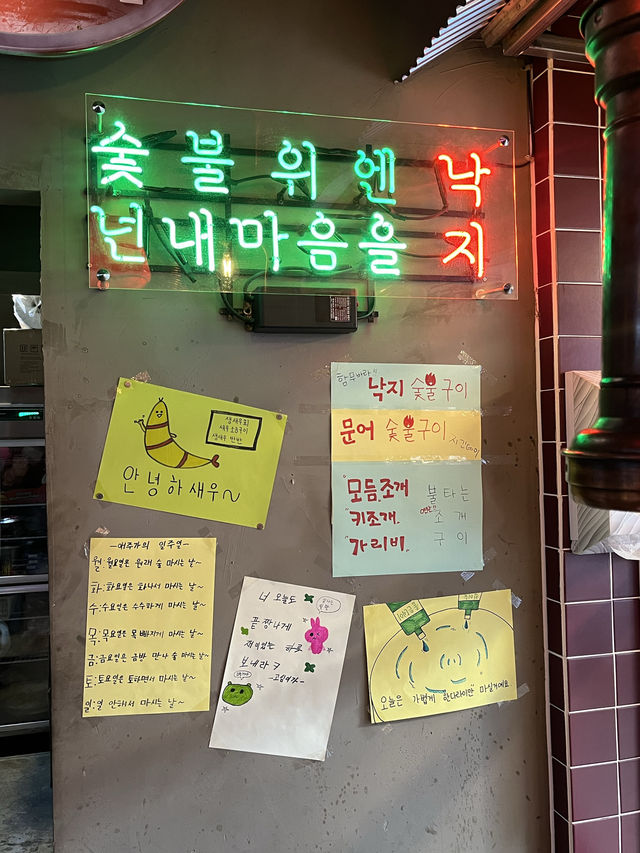 숯불위엔낙
넌내마음을지
생새우회
새우소금구이
생새우 반반
안녕하새우~
낙지 숯불구이
문어 숯불구이
모듬조개
키조개
가리비
불타는
조개
구이
-애주가의 일주일-
월:월요일은 원래 술 마시는 날~
화:화요일은 화나서 마시는 날~
수:수요일은 수수하게 마시는 날~
목:목요일은 목 빠지게 마시는 날~
금:금요일은 금방 만나 술 마시는 날~
토:토요일은 토하면서 마시는 날~
일:일 안해서 마시는 날~
너 오늘도
끝장나게
재미있는 하루
보내라ㅋ
오늘은 가볍게 한다라이만 마실거예요